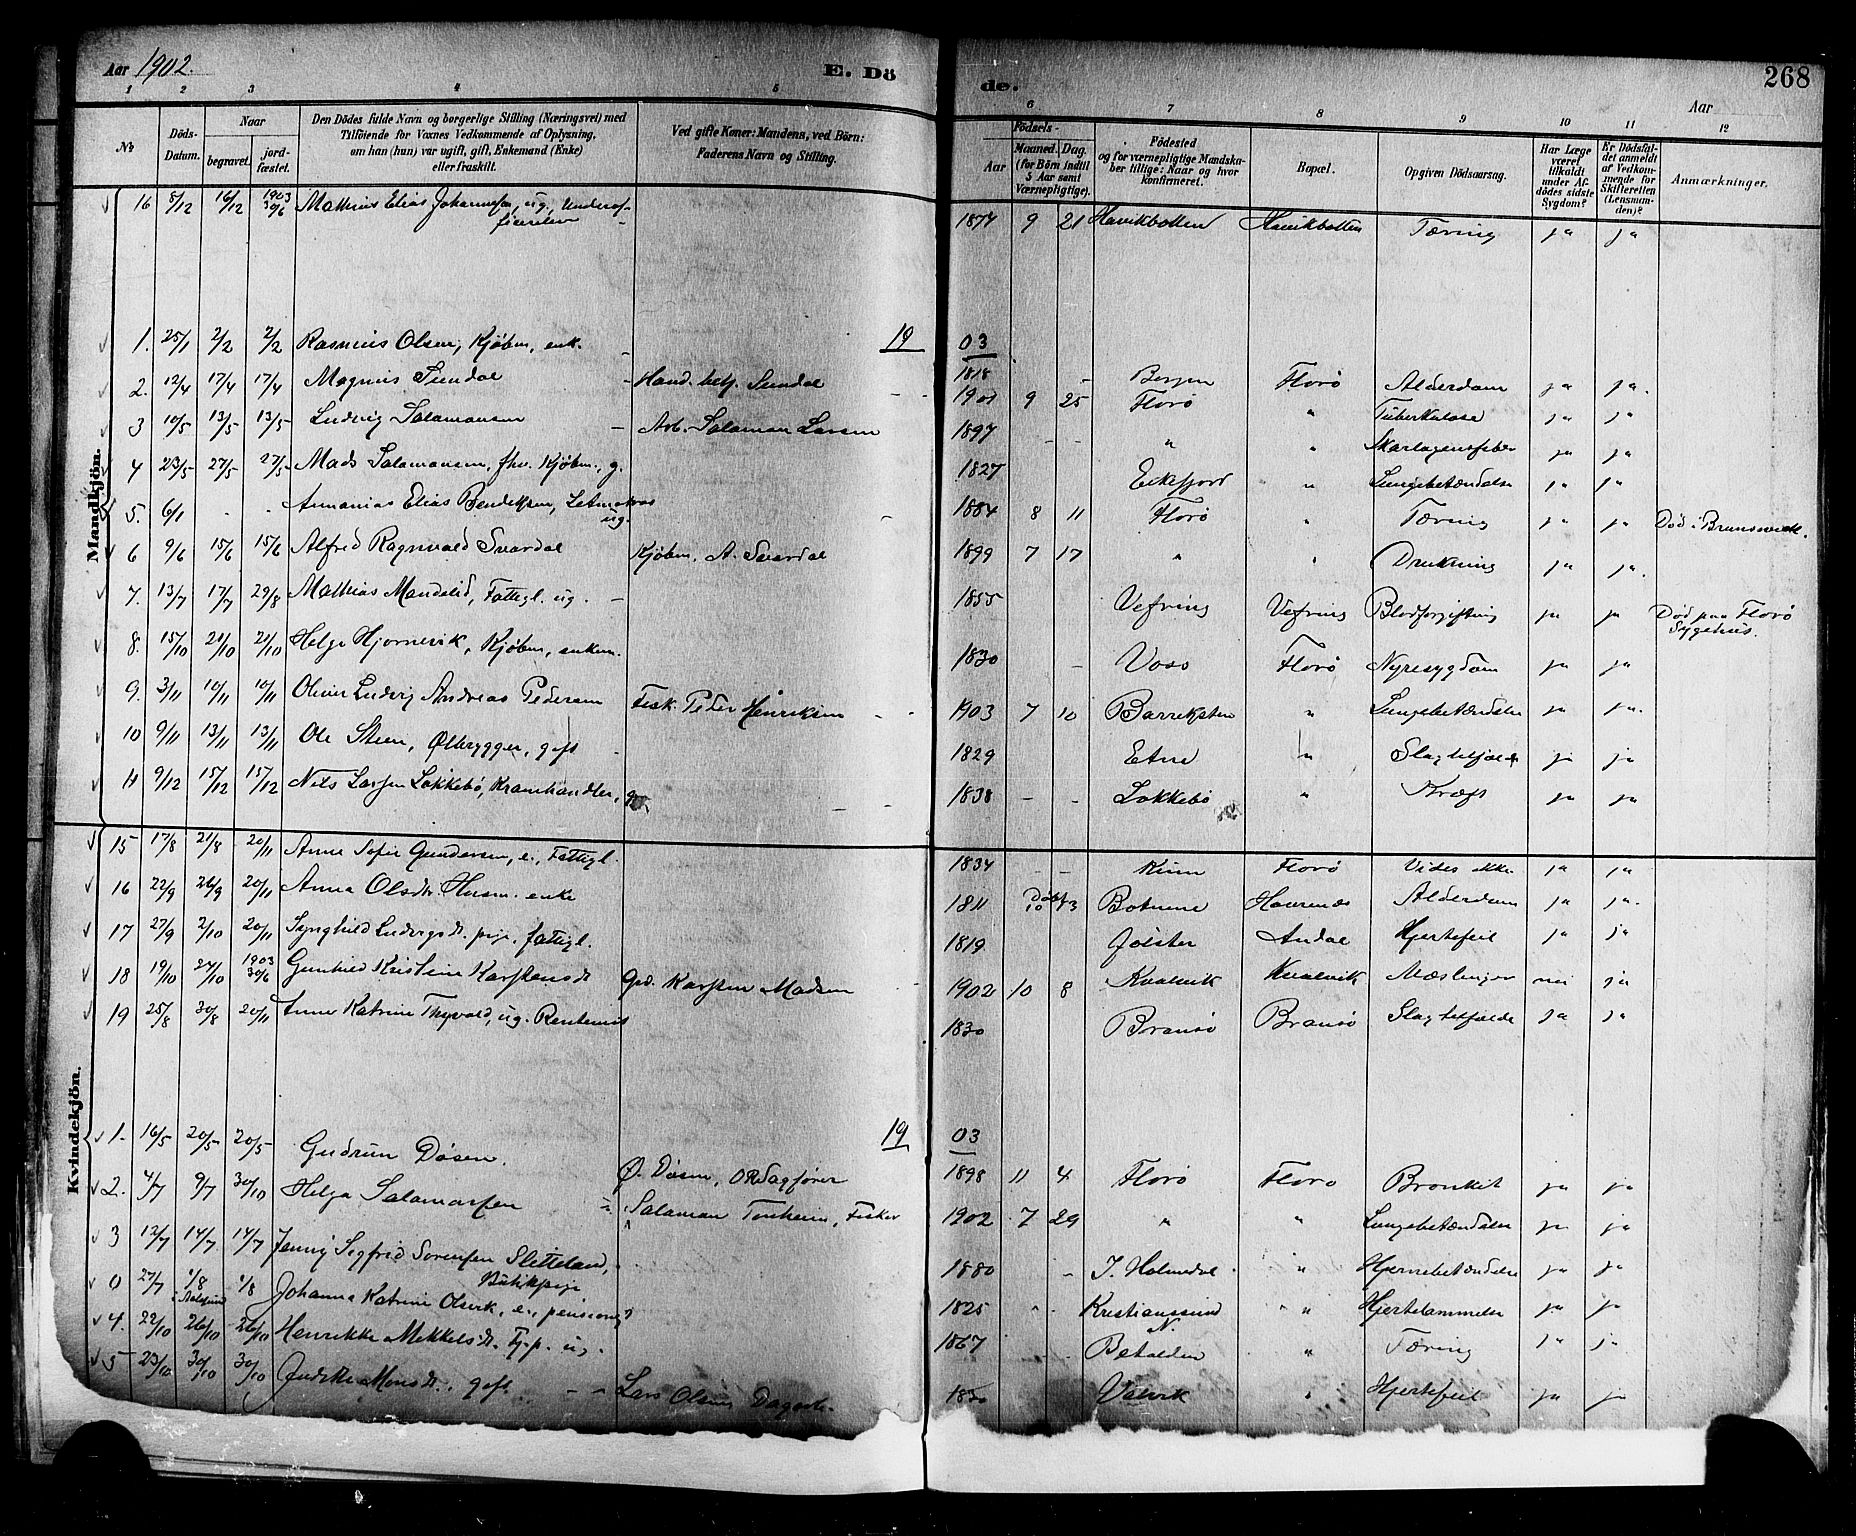 Aar 1902.
E. Dö
de.
268
Aar
1 2 3 4 5 6 7 8 9 10 11 12
No
Döds-Datum.
Naar
begravet.
jord-fæstet.
Den Dödes fulde Navn og borgerlige Stilling (Næringsvei) med
Tilföiende for Voxnes Vedkommende af Oplysning,
om han (hun) var ugift, gift, Enkemand (Enke)
eller fraskilt.
Ved gifte Koner: Mandens, ved Börn:
Faderens Navn og Stilling.
Födsels-
Aar
Maaned. Dag.
(for Börn indtil
5 Aar samt
Værnepligtige).
Födested
og for værnepligtige Mandska-
ber tillige: Naar og hvor
konfirmeret.
Bopæl.
Opgiven Dödsaarsag.
Har Læge
været
tilkaldt
under Af-
dödes sidste
Sygdom?
Er Dödsfal-
det anmeldt
af Vedkom-
mende for
Skifteretten
(Lensman-
den)?
Anmærkninger.
Mandkjön.
16 8/12 16/12 1903 30/6 Mathias Elias Johannesen, ug. Underof-
ficerselev
1874 9 21 Havikbotten Havikbotten Tæring ja ja
1903
1. 25/1 2/2 2/2 Rasmus Olsen, Kjøbm, enk. 1818 Bergen Florø Alderdom ja ja.
2. 12/4 17/4 17/4 Magnus Sundal Hand. betj. Sundal 1901 9 25 Florø " Tuberkulose ja ja
3 10/5 13/5 13/5 Ludvig Salamonsen Arb. Salamon Larsen 1897 " " Skarlagensfeber ja ja
4 23/5 27/5 27/5 Mads Salamonsen, fhv. Kjøbm., g. 1827 Eikefjord " Lungebetændelse ja ja
5. 6/1 Annanias Elias Bendiksen, Letmatros
ug. 1884 8 11 Florø " Tæring ja ja Död i Brunswick.
6 9/6 15/6 15/6 Alfred Ragnvald Svardal Kjøbm. A. Svardal 1899 7 17 " " Drukning ja ja.
7. 13/7 17/7 29/8 Mathias Mandelid, Fattigl. ug. 1855 Vefring Vefring Blodforgiftning ja ja Död paa Florø
Sygehus.
8. 15/10 21/10 21/10 Helge Hjørnevik, Kjøbm, enkem. 1830 Voss Florø Nyresygdom ja ja
9. 3/11 10/11 10/11 Oliver Ludvig Andreas Pedersen Fisk. Peder Henriksen 1903 7 10 Barrekjsten " Lungebetændelse ja ja.
10 9/11 13/11 13/11 Ole Steen, Ølbrygger, gift 1829 Etne " Slagtilfælde ja ja
11 9/12 15/12 15/12 Nils Larsen Løkkebø, Kramhandler, g. 1838 Løkkebø " Kræft ja ja
Kvindekjön.
15 17/8 21/8 20/11 Anne Sofie Gundersen, e., Fattigl. 1834 Kinn Florø Vides ikke ja ja
16 22/9 26/9 20/11 Anna Olsdt. Husm. enke 1811 Döbt 10 13 Botnene Havrenes Alderdom ja ja.
17 27/9 2/10 20/11 Synghild Ludvigsdt. pige, fattigl. 1819 Jølster Andal Hjertefeil ja ja
18 19/10 27/10 1903 30/6 Gunhild Kristine Karstensdt Grd. Karsten Madsen 1902 10 8 Kvalvik Kvalvik Mæslinger nei ja
19 25/8 30/8 20/11 Anne Katrine Thyvold, ug. Rentenist 1830 Bransø Bransø Slagtilfælde ja ja
1903
1. 16/5 20/5 20/5 Gudrun Døsen. Ø. Døsen, ORSagfører 1898 11 4 Florø Florø Bronkit ja ja
2. 4/7 9/7 30/10 Helga Salamonsen Salamon Tonheim, Fisker 1902 7 29 " " Lungebetændelse ja ja
3 12/7 14/7 14/7 Jenny Sigfrid Sørensen Sletteland,
Butikpige 1880 I. Holmedal " Hjernebetændelse ja ja
0 27/7 1/8 i Aalesund 1/8 Johanna Katrine Olsvik, e., pensions? 1825 Kristianssund N. " Hjertelammelse ja ja
4. 22/10 26/10 26/10 Henrikke Mikkelsdt. Tj.p. ug. 1867 Botolden " Tæring ja ja
5 23/10 30/10 30/10 Monsdt., gift. Lars Olsen 1830 Valvik " Hjertefeil ja ja